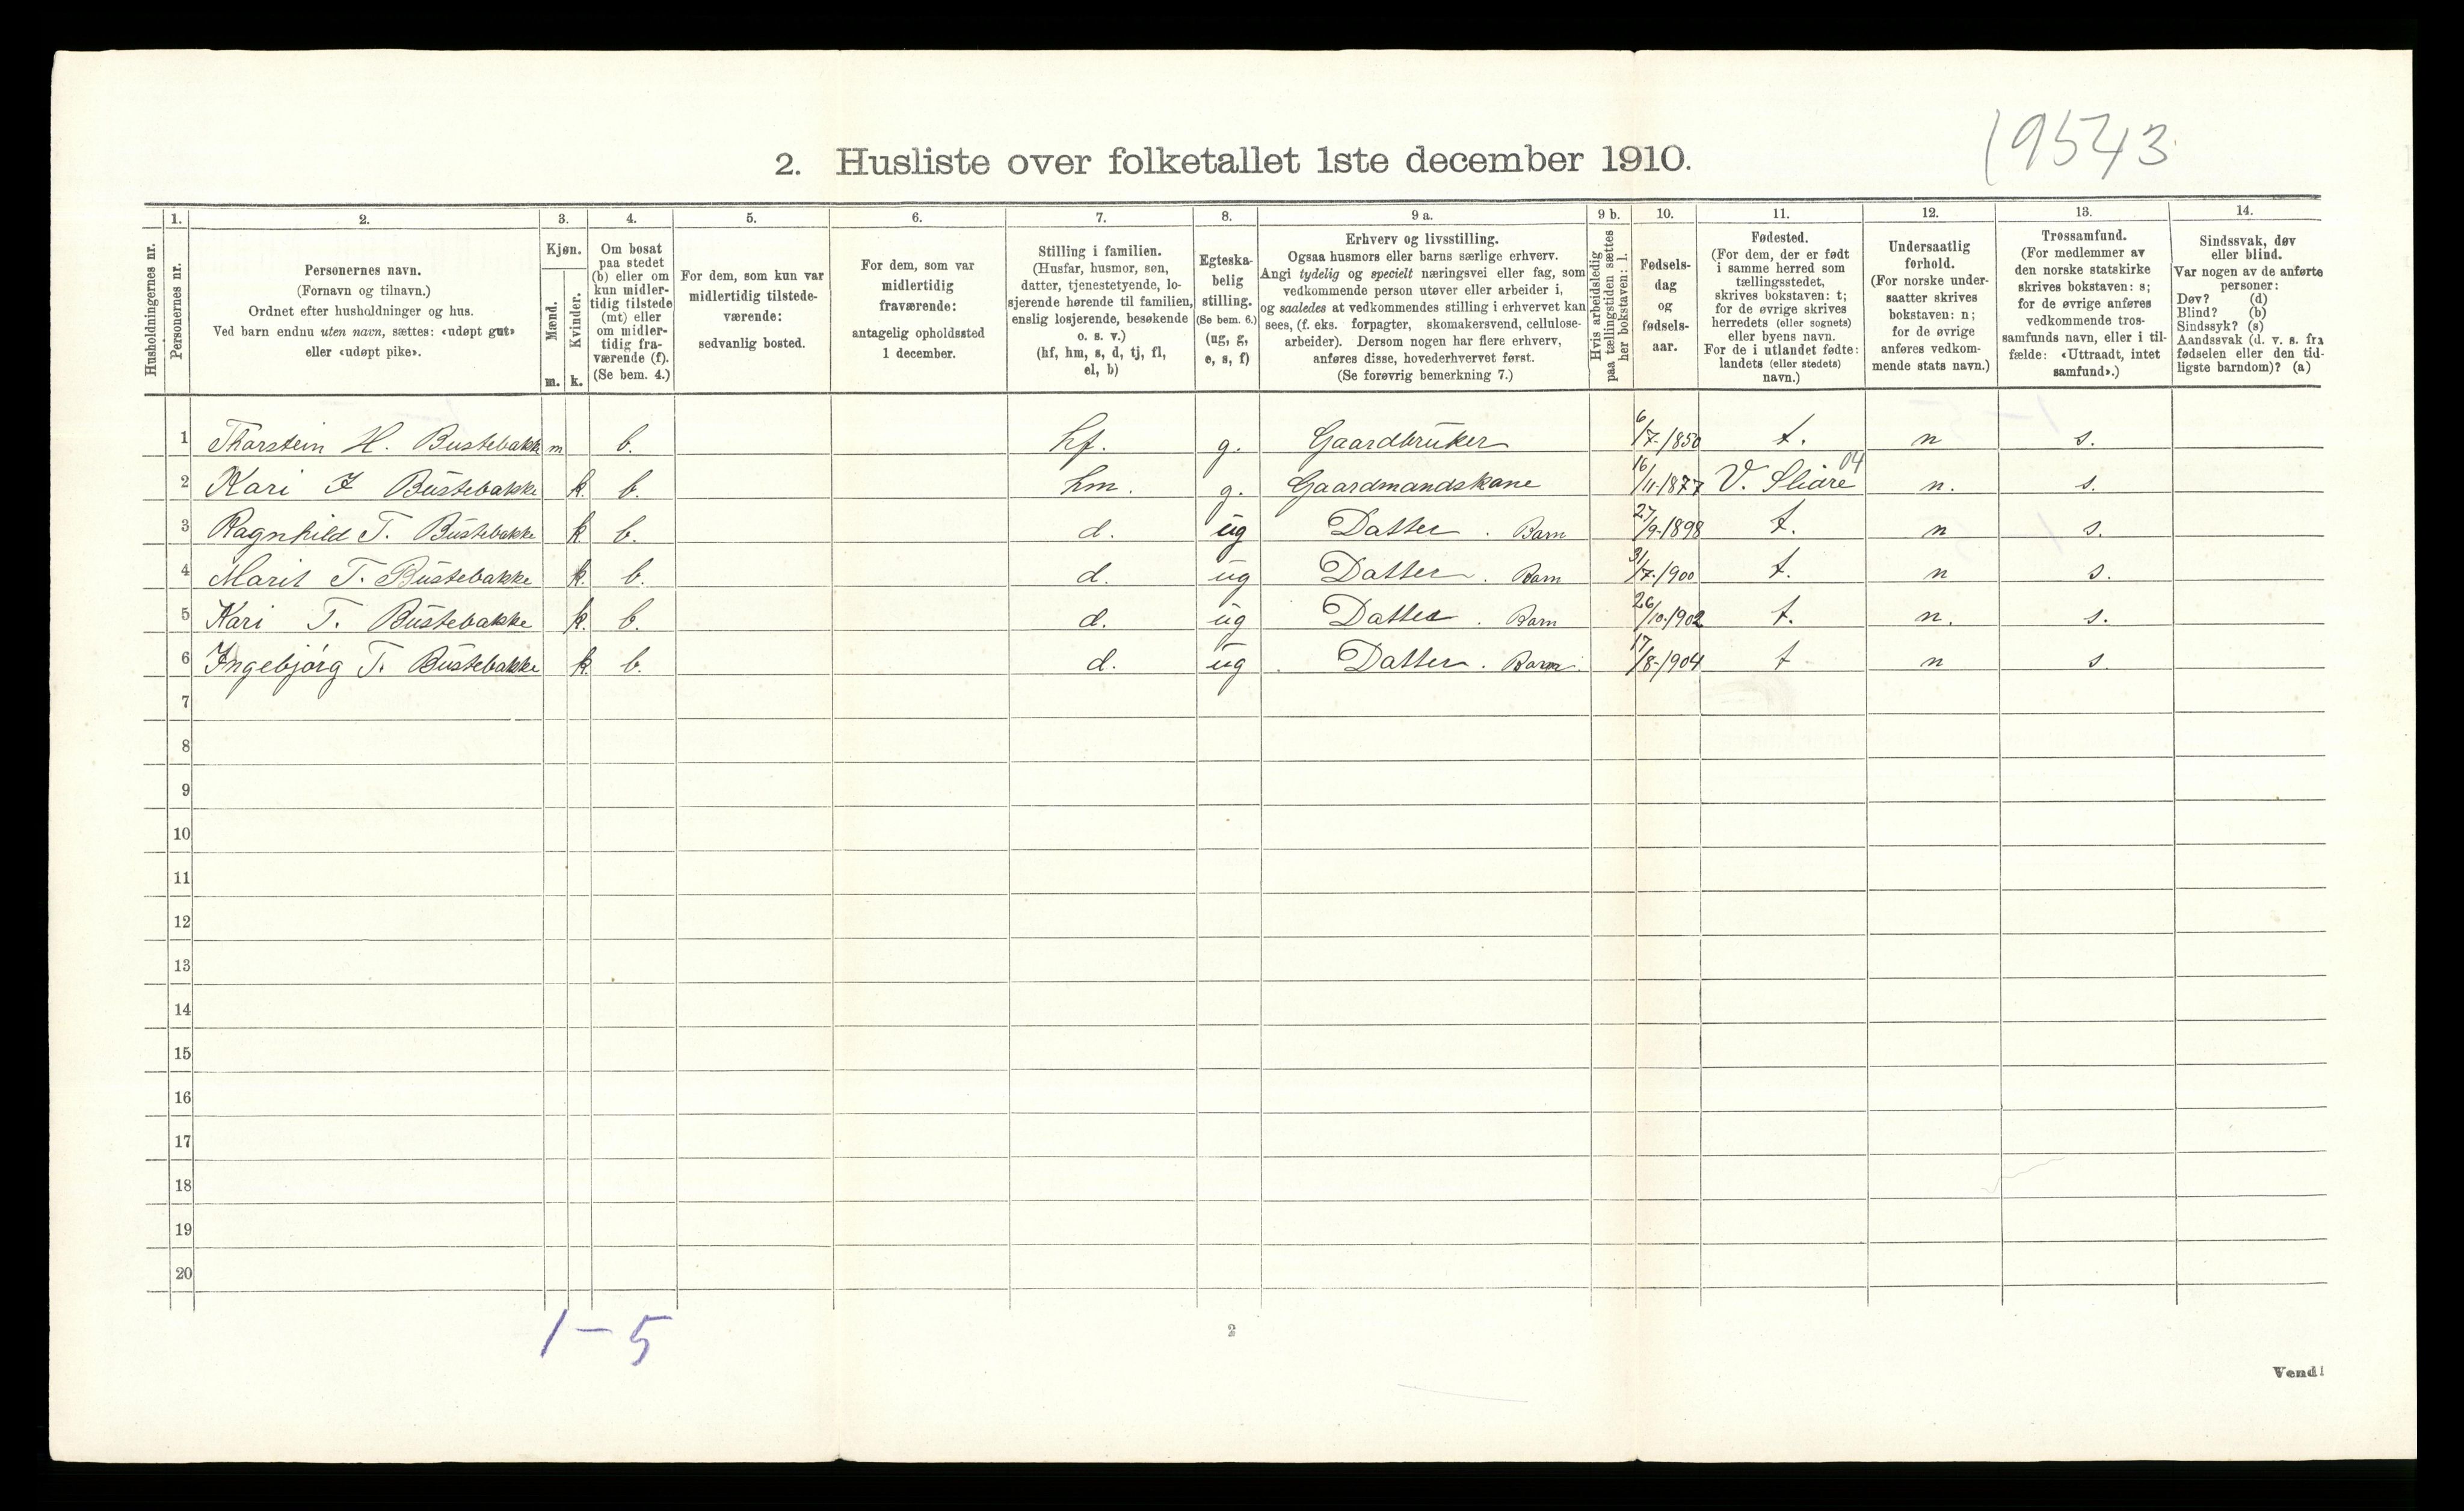 19543
2. Husliste over folketallet 1ste december 1910.
Husholdningernes nr.
1.
Personernes nr.
2.
Personernes navn.
(Fornavn og tilnavn.)
Ordnet efter husholdninger og hus.
Ved barn endnu uten navn, sættes: «udøpt gut»
eller «udøpt pike».
3.
Kjøn.
Mænd.
Kvinder.
m. k.
4.
Om bosat
paa stedet
(b) eller om
kun midler-
tidig tilstede
(mt) eller
om midler-
tidig fra-
værende (f).
(Se bem. 4.)
5.
For dem, som kun var
midlertidig tilstede-
værende:
sedvanlig bosted.
6.
For dem, som var
midlertidig
fraværende:
antagelig opholdssted
1 december.
7.
Stilling i familien.
(Husfar, husmor, søn,
datter, tjenestetyende, lo-
sjerende hørende til familien,
enslig losjerende, besøkende
o. s. v.)
(hf, hm, s, d, tj, fl,
el, b)
8.
Egteska-
belig
stilling.
(Se bem. 6.)
(ug, g,
e, s, f)
9 a.
Erhverv og livsstilling.
Ogsaa husmors eller barns særlige erhverv.
Angi tydelig og specielt næringsvei eller fag, som
vedkommende person utøver eller arbeider i,
og saaledes at vedkommendes stilling i erhvervet kan
sees, (f. eks. forpagter, skomakersvend, cellulose-
arbeider). Dersom nogen har flere erhverv,
anføres disse, hovederhvervet først.
(Se forøvrig bemerkning 7.)
9 b.
Hvis arbeidsledig
paa tællingstiden sættes
her bokstaven: l.
10.
Fødsels-
dag
og
fødsels-
aar.
11.
Fødested.
(For dem, der er født
i samme herred som
tællingsstedet,
skrives bokstaven: t;
for de øvrige skrives
herredets (eller sognets)
eller byens navn.
For de i utlandet fødte:
landets (eller stedets)
navn.)
12.
Undersaatlig
forhold.
(For norske under-
saatter skrives
bokstaven: n;
for de øvrige
anføres vedkom-
mende stats navn.)
13.
Trossamfund.
(For medlemmer av
den norske statskirke
skrives bokstaven: s;
for de øvrige anføres
vedkommende tros-
samfunds navn, eller i til-
fælde: «Uttraadt, intet
samfund».)
14.
Sindssvak, døv
eller blind.
Var nogen av de anførte
personer:
Døv? (d)
Blind? (b)
Sindssyk? (s)
Aandssvak (d. v. s. fra
fødselen eller den tid-
ligste barndom)? (a)
1 Thorstein H. Bustebakke m b. hf. g. Gaardbruker 6/7-1850 t. n s.
2 Kari I Bustebakke k. b. hm. g. Gaardmandskone 16/11-1877 V. Slidre 04 n. s.
3 Ragnhild T. Bustebakke k b. d. ug Datter. Barn 27/9-1898 t. n s.
4 Marit T. Bustebakke k. b. d. ug Datter. Barn 31/7-1900 t. n s.
5 Kari T. Bustebakke k. b. d. ug Datter. Barn 26/10-1902 t. n. s.
6 Ingebjørg T. Bustebakke k. b. d. ug Datter. Barn. 17/8-1904 t n s.
7
8
9
10
11
12
13
14
15
16
17
18
19
20
1 – 5
2
Vend!